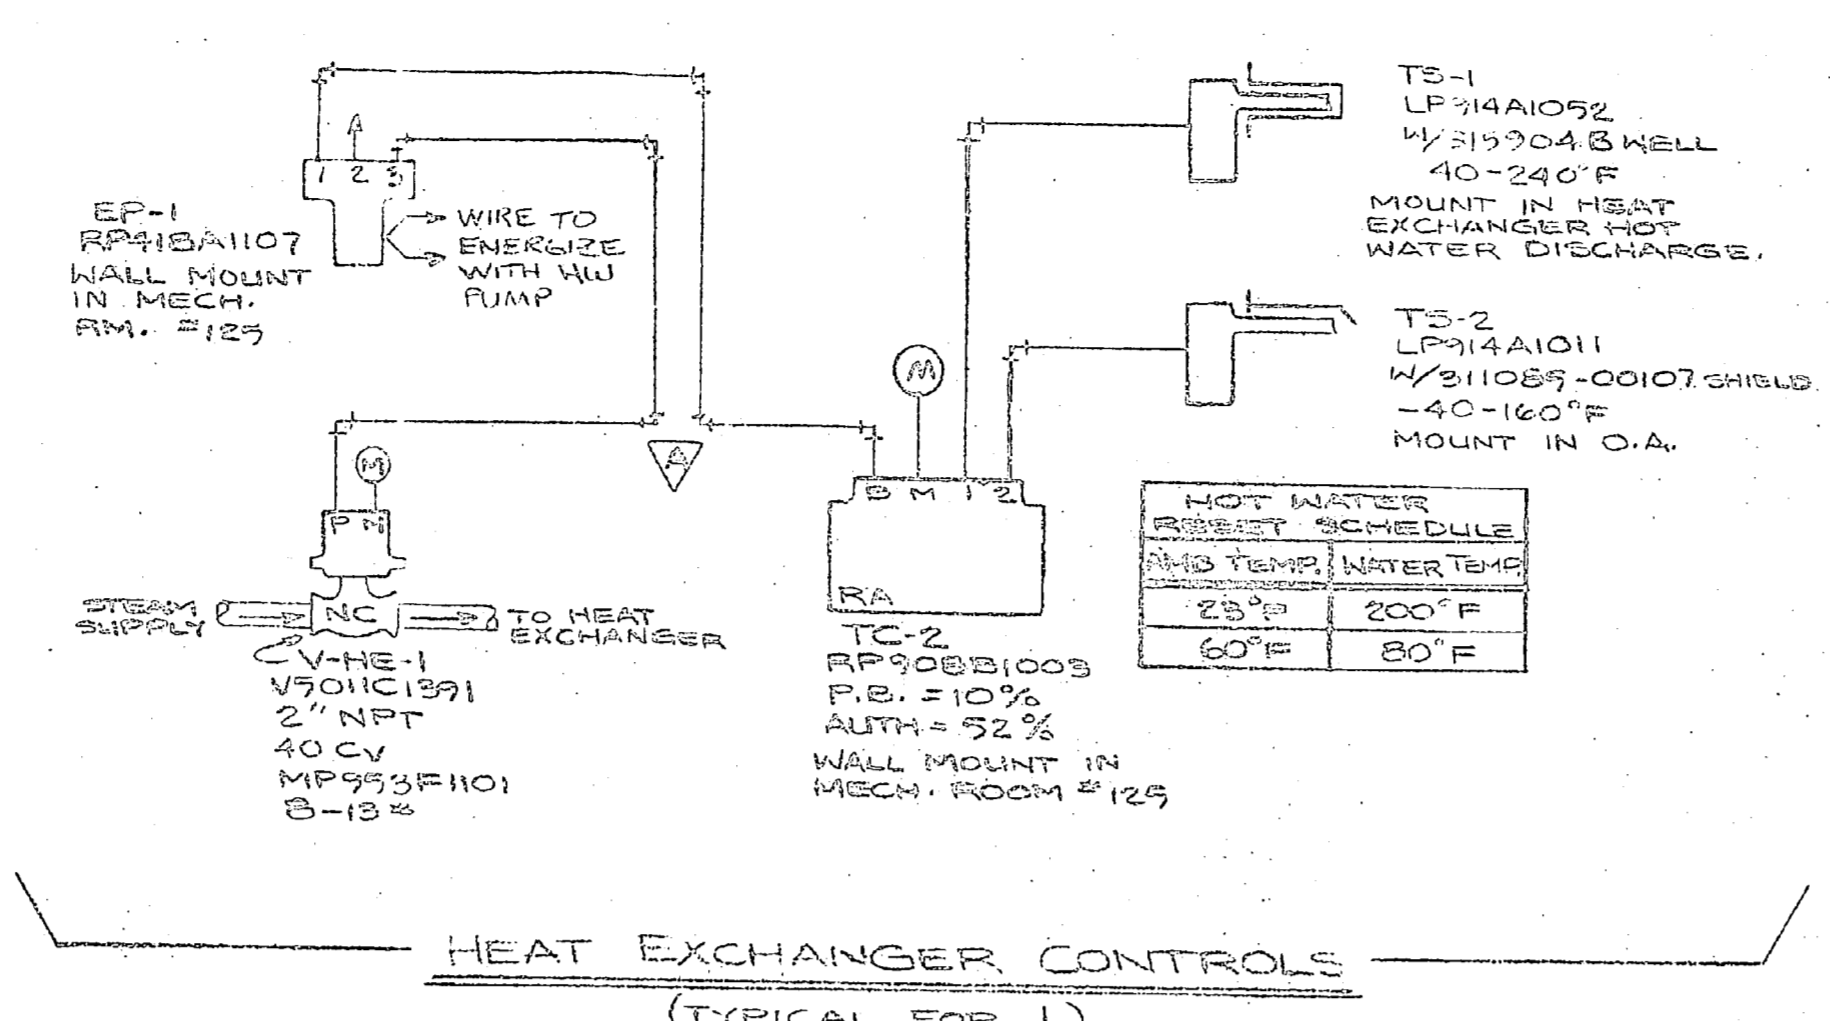 1 2 3
EP-1
RP418A1107
WALL MOUNT
IN MECH.
RM. #125
WIRE TO
ENERGIZE
WITH HW
PUMP
TS-1
LP914A1052
W/315904B WELL
40-240°F
MOUNT IN HEAT
EXCHANGER HOT
WATER DISCHARGE.
TS-2
LP914A1011
W/311085-00107 SHIELD
-40-160°F
MOUNT IN O.A.
M
A
M
P M
NC
STEAM
SUPPLY
TO HEAT
EXCHANGER
V-HE-1
V5011C1391
2" NPT
40 CV
MP953F1101
8-13#
B M 1 2
RA
TC-2
RP908B1003
P.B. = 10%
AUTH = 52%
WALL MOUNT IN
MECH. ROOM #125
HOT WATER
RESET SCHEDULE
AMB TEMP. WATER TEMP.
200°F
60°F 80°F
HEAT EXCHANGER CONTROLS
(TYPICAL FOR 1)